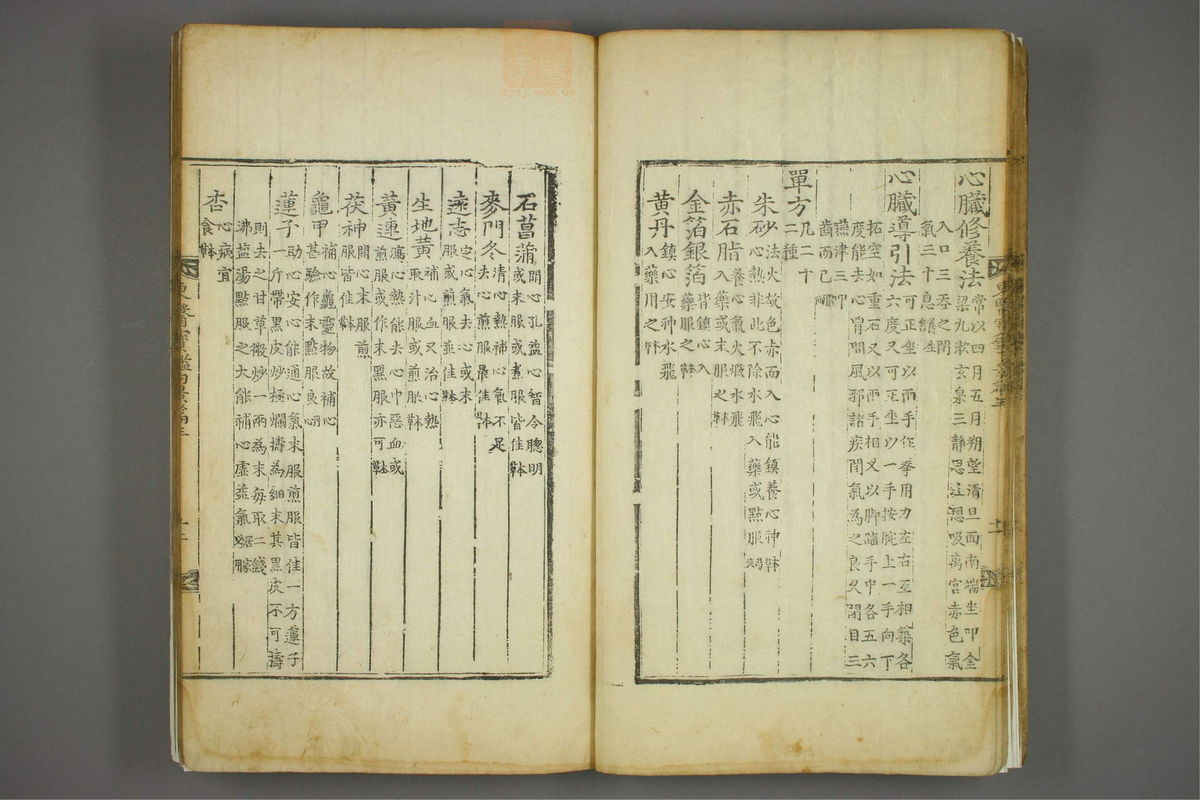 心臟修養法
常以四月五月朔望清旦面南端坐叩金
梁九漱玄泉三靜思注想吸离宮赤色氣
入口三吞之閉
氣三十息養生
心臟導引法
可正坐以兩手作拳用力左右互相築各
六度又可正坐以一手按腕上一手向下
拓空如重石又以兩手相叉以脚踏手中各五六
度能去心胷間風邪諸疾閉氣為之良久閉目三
嚥津三叩
齒而已
單方
凡二十
二種
朱砂
法火故色赤而入心能鎮養心神本草
心熱非此不除水飛入藥或點服
赤石脂
養心氣火煆水飛
入藥或末服之本草
金箔銀箔
皆鎮心入
藥服之本草
黃丹
鎮心安神水飛
入藥用之本草
東醫寶鑑內景篇三
十一
石菖蒲
開心孔益心智令聰明
或末服或煮服皆佳本草
麥門冬
清心熱補心氣不足
去心煎服最佳本草
遠志
定心氣去心或末
服或煎服並佳本草
生地黃
補心血又治心熱
取汁服或煎服本草
黃連
瀉心熱能去心中惡血或
煎服或作末點服亦可本草
茯神
開心末服煎
服皆佳本草
龜甲
補心龜靈物故補心
甚驗作末點服良
蓮子
助心安心能通心氣末服煎服皆佳一方蓮子
一斤帶黑皮炒極爛擣為細末其黑皮不可擣
則去之甘草微炒一兩為末每取二錢
沸盐湯點服之大能補心虛益氣
杏
心病宜
食本草
東醫寶鑑內景篇三
十二